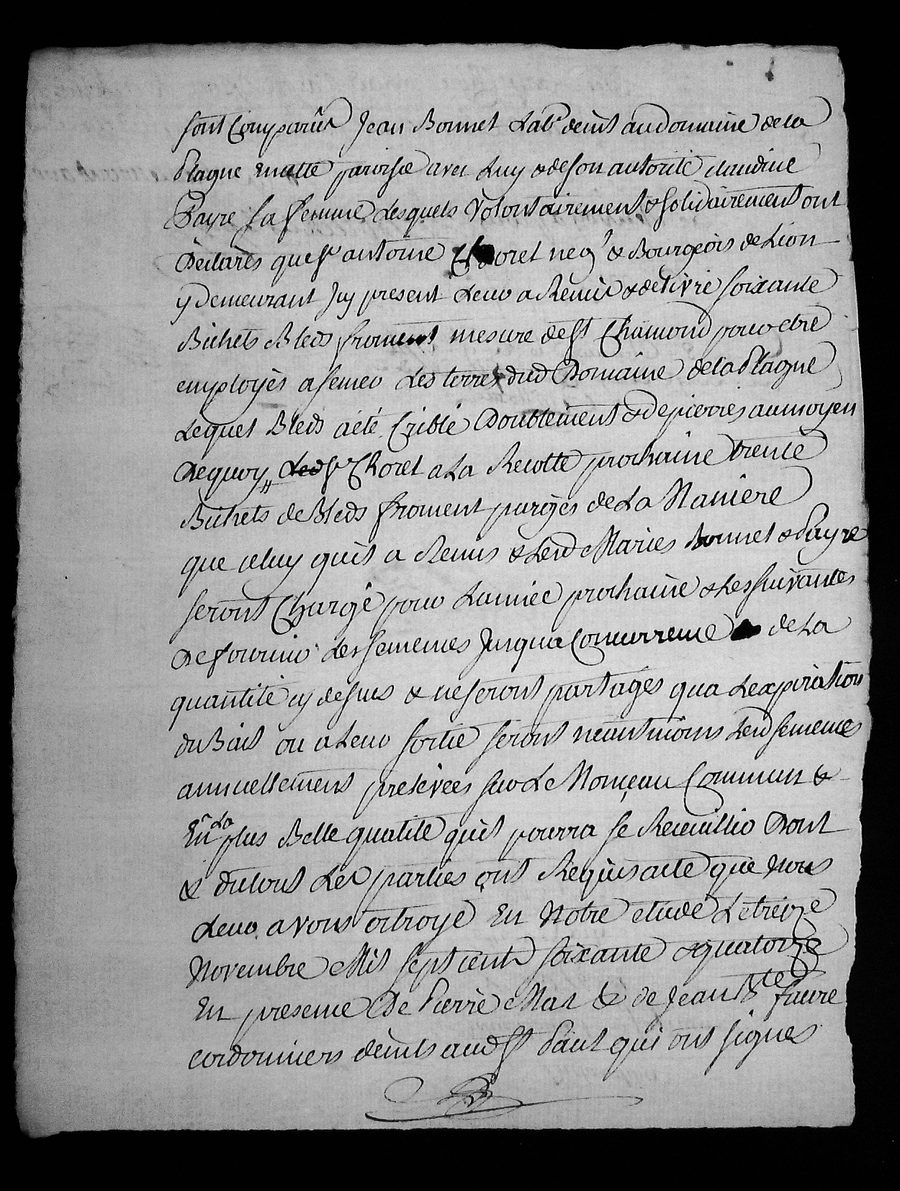 sont Comparûs Jean Bonnet Labr demt au domaine de la
Plagne en cette paroisse avec Luy & de son autorité Claudine
Payre sa femme Lesquels Volontairement & solidairement ont
Déclarés que sr antoine Choret negt & Bourgeois de Lion
y demeurant Icy present Leur a Remis & delivré soixante
Bichets Bleds froment mesure de st Chamond pour etre
employés a semer Les terres dud Domaine de la Plagne
Lequel Bleds a été Criblé Doublement & de pierres au moyen
Dequoy Led sr Choret a La Recolte prochaine trente
Bichets de Bleds froment purgés de La Maniere
que celuy quil a Remis & Lesd Maries Bonnet & Payre
seront Chargé pour Lannée prochaine & Les suivantes
De fournir Les semences Jusqua Concurrence de La
quantité cy dessus & ne seront partagés qua Lexpiration
du Bail ou a Leur sortie seront néantmoins Lesd semences
annuellement prelevées sur Le Monçeau Commun &
En La plus Belle qualité quil pourra se Recuillir Dont
& du tout Les parties ont Requis acte que Nous
Leur avons octroyé En Notre etude Le treize
Novembre Mil sept cent soixante & quatorze
En presence De Pierre Mas & de Jean Bte faure
cordonniers demts aud st Paul qui ont signés